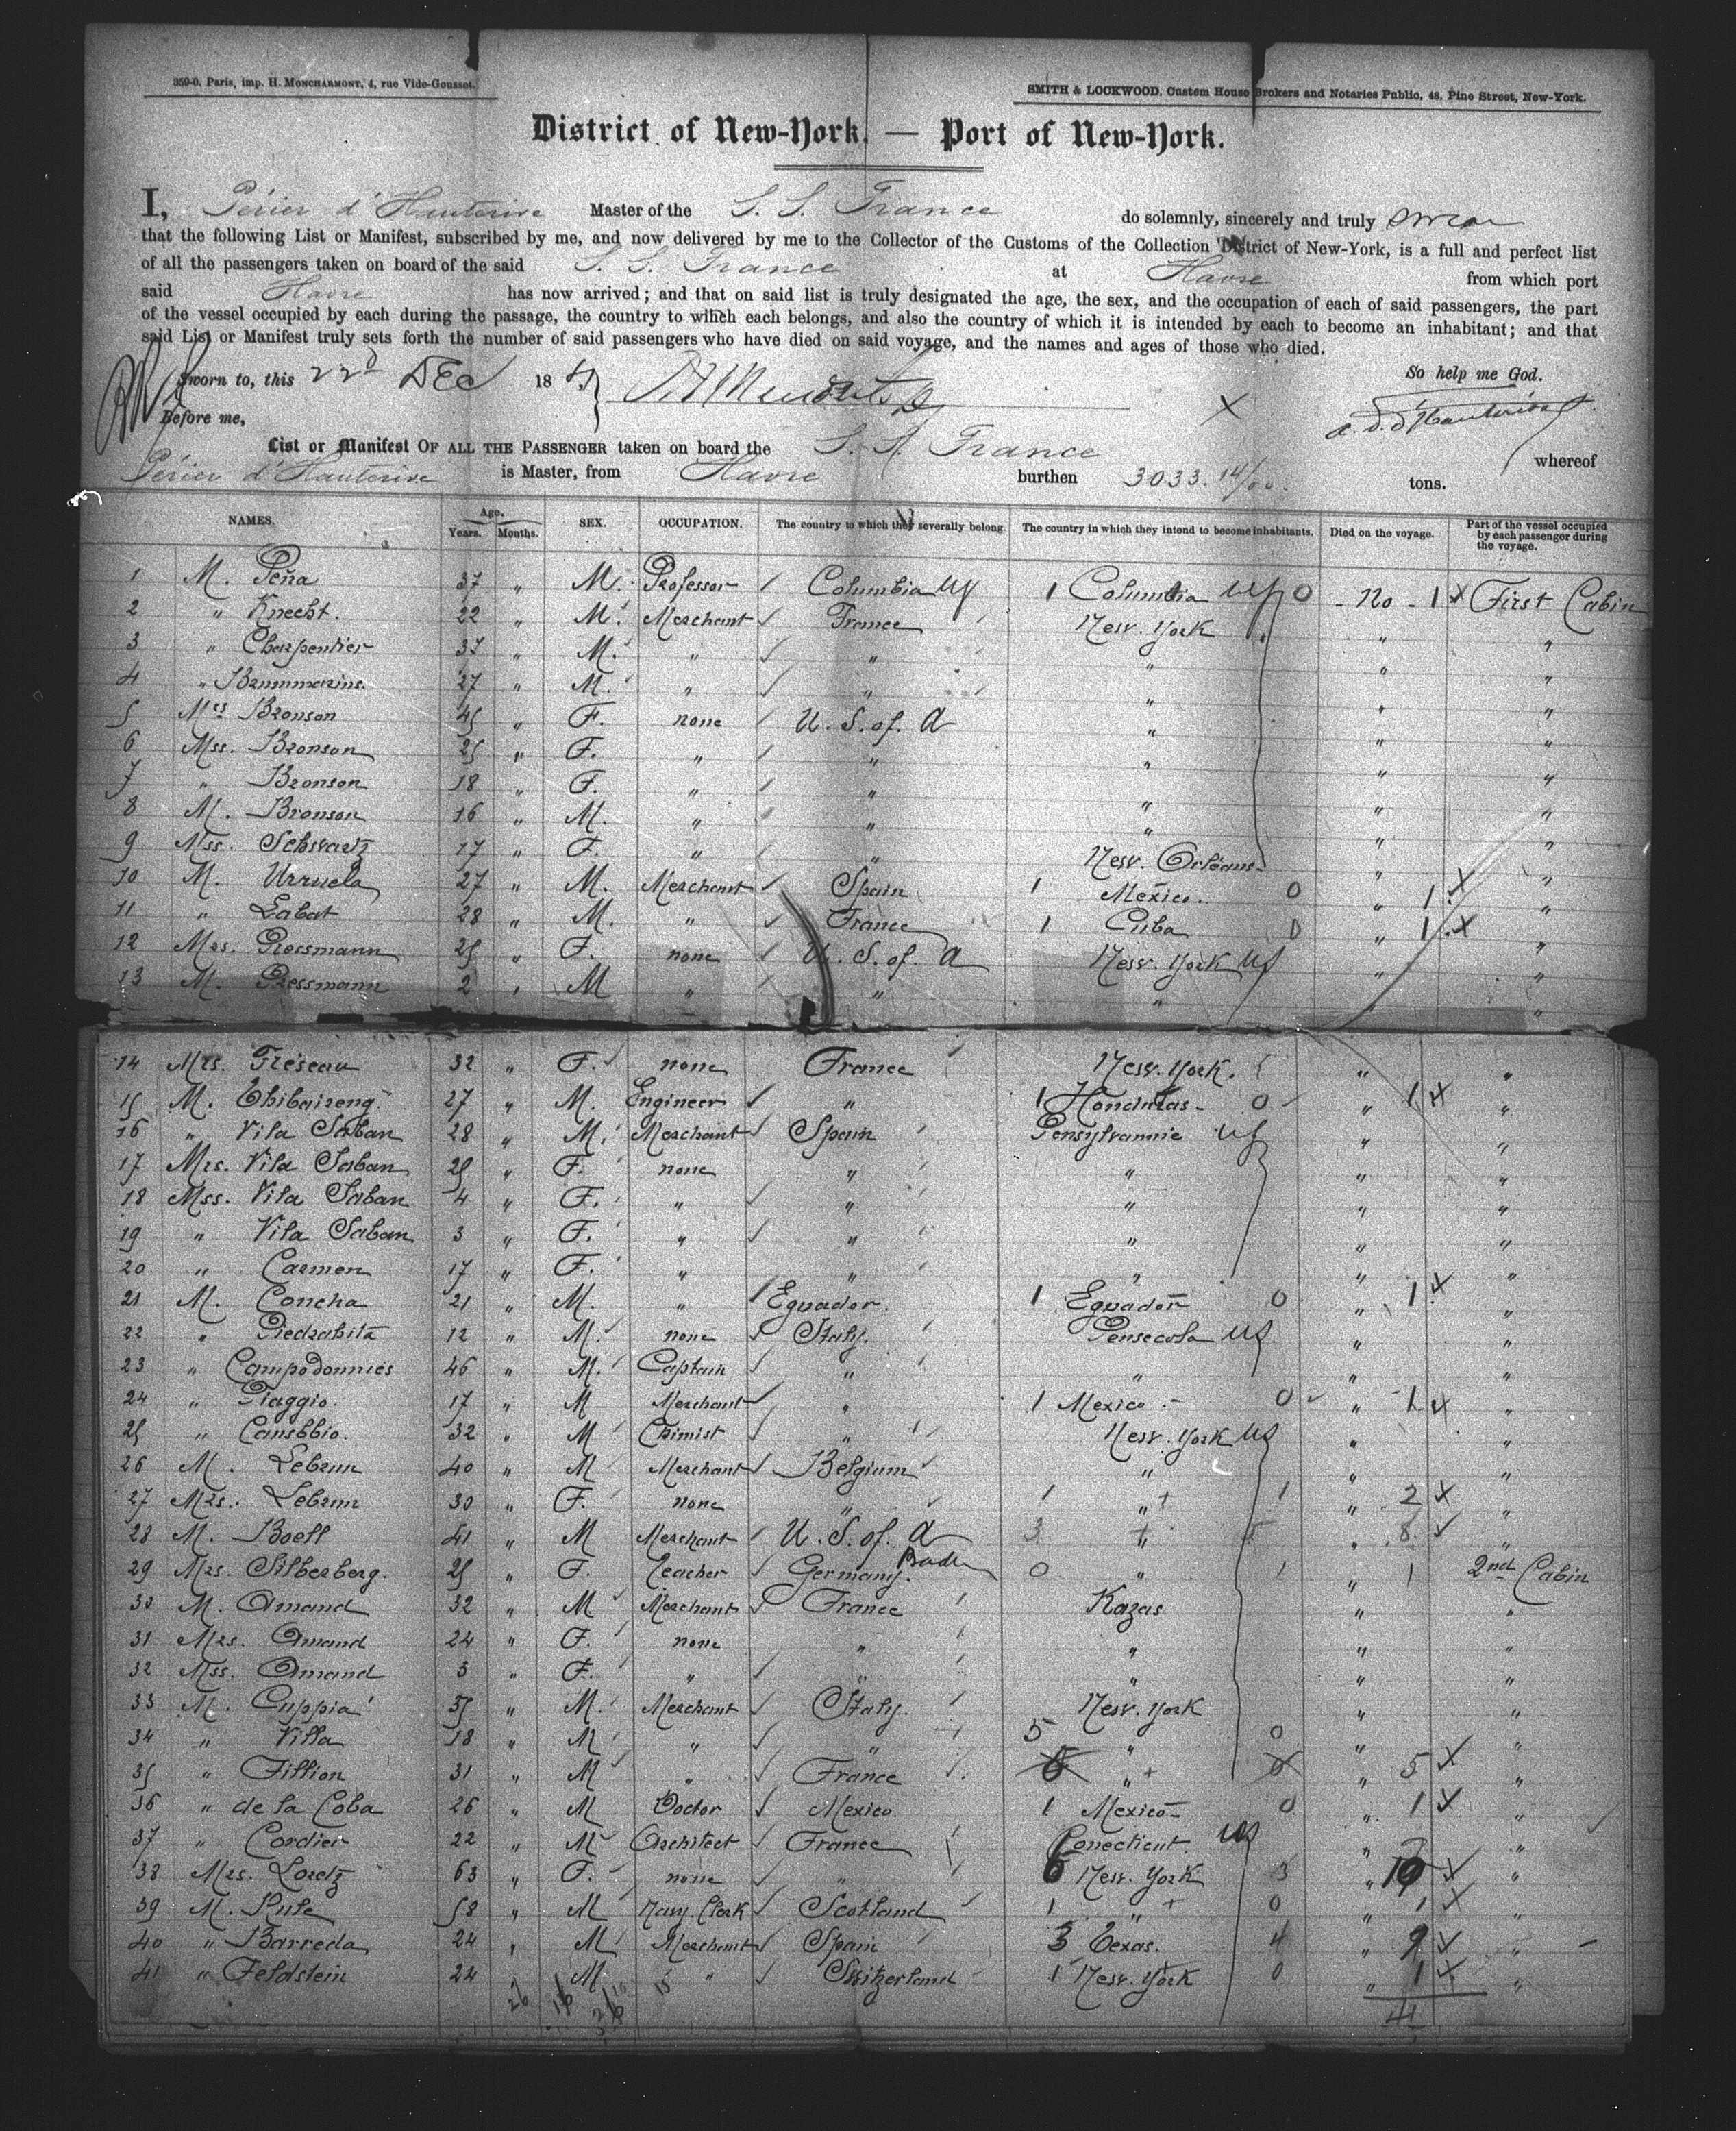 359-0. Paris, imp. H. MONCHARMONT, 4, rue Vide-Gousset.
SMITH & LOCKWOOD. Custom House Brokers and Notaries Public, 48, Pine Street, New-York.
District of New-York. — Port of New-York.
I, Périer d'Hauterive Master of the S. S. France do solemnly, sincerely and truly swear
that the following List or Manifest, subscribed by me, and now delivered by me to the Collector of the Customs of the Collection District of New-York, is a full and perfect list
of all the passengers taken on board of the said S. S. France at Havre from which port
said Havre has now arrived; and that on said list is truly designated the age, the sex, and the occupation of each of said passengers, the part
of the vessel occupied by each during the passage, the country to which each belongs, and also the country of which it is intended by each to become an inhabitant; and that
said List or Manifest truly sets forth the number of said passengers who have died on said voyage, and the names and ages of those who died.
So help me God.
Sworn to, this 22d DEC 18
Before me,
List or Manifest OF ALL THE PASSENGER taken on board the S. S. France whereof
Périer d'Hauterive is Master, from Havre burthen 3033. 14/00. tons.
NAMES. Age. Years. Months. SEX. OCCUPATION. The country to which they severally belong. The country in which they intend to become inhabitants. Died on the voyage. Part of the vessel occupied by each passenger during the voyage.
1 M. Peña 37 " M. Professor Columbia 1 Columbia US 0 - No - 1 x First Cabin
2 " Knecht. 22 " M. Merchant France New. York " "
3 " Charpentier 37 " M. " " " " "
4 " Brummarins. 27 " M. " " " " "
5 Mrs Bronson 45 " F. none U. S. of. A " " "
6 Mss. Bronson 25 " F. " " " " "
7 " Bronson 18 " F. " " " " "
8 M. Bronson 16 " M. " " " " "
9 Mss. Schvartz 17 " F. " " New. Orléans " "
10 M. Urruela 27 " M. Merchant Spain 1 Mexico. 0 " 1 x "
11 " Labat 28 " M. " France 1 Cuba 0 " 1 x "
12 Mrs. Pressmann 25 " F. none U. S. of. A New. York US " "
13 M. Pressmann 2 " M " " " "
14 Mrs. Fréseau 32 " F. none France New. York. " "
15 M. Thibaireng 27 " M. Engineer " 1 Honduras - 0 " 1 x "
16 " Vila Saban 28 " M. Merchant Spain Pensylvannie US " "
17 Mrs. Vila Saban 25 " F. none " " " "
18 Mss. Vila Saban 4 " F. " " " " "
19 " Vila Saban 3 " F. " " " " "
20 " Carmen 17 " F. " " " " "
21 M. Concha 21 " M. " Equador. 1 Equador 0 " 1 x "
22 " Piedrahita 12 " M. none Italy. Pensecola US " "
23 " Campodonnies 46 " M. Captain " " " "
24 " Piaggio. 17 " M Merchant " 1 Mexico - 0 " 1 x "
25 " Canebbio. 32 " M Chimist " New. York US " "
26 M. Lebrun 40 " M Merchant Belgium " " "
27 Mrs. Lebrun 30 " F. none " 1 " + 1 " 2 x "
28 M. Boell 41 " M Merchant U. S. of. A 3 " 5 " 8 "
29 Mrs. Silberberg. 25 " F. Teacher Germany. Baden 0 " 1 " 1 2nd Cabin
30 M. Amand 32 " M Merchant France Kazas " "
31 Mrs. Amand 24 " F. none " " " "
32 Mss. Amand 3 " F. " " " " "
33 M. Cuppia 35 " M. Merchant Italy. New. York " "
34 " Villa 18 " M " " 5 " 0 " "
35 " Fillion 31 " M " France " + " 5 x "
36 " de la Coba 26 " M Doctor Mexico. 1 Mexico - 0 " 1 x "
37 " Cordier 22 " M Architect France Conecticut. US " "
38 Mrs. Loretz 63 " F. none " 6 New. York 3 " 10 x "
39 M. Pule 58 " M Navy. Clerk Scotland 1 " + 0 " 1 x "
40 " Barreda 24 " M Merchant Spain 3 Texas. 4 " 9 x " -
41 " Feldstein 24 M " Switzerland 1 New. York 0 " 1 x "
26 16 15
41